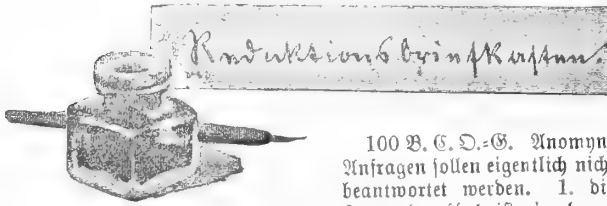 Redaktionsbriefkasten.
100 B. C. O.=G. Anomyn
Anfragen sollen eigentlich nich
beantwortet werden. 1. di